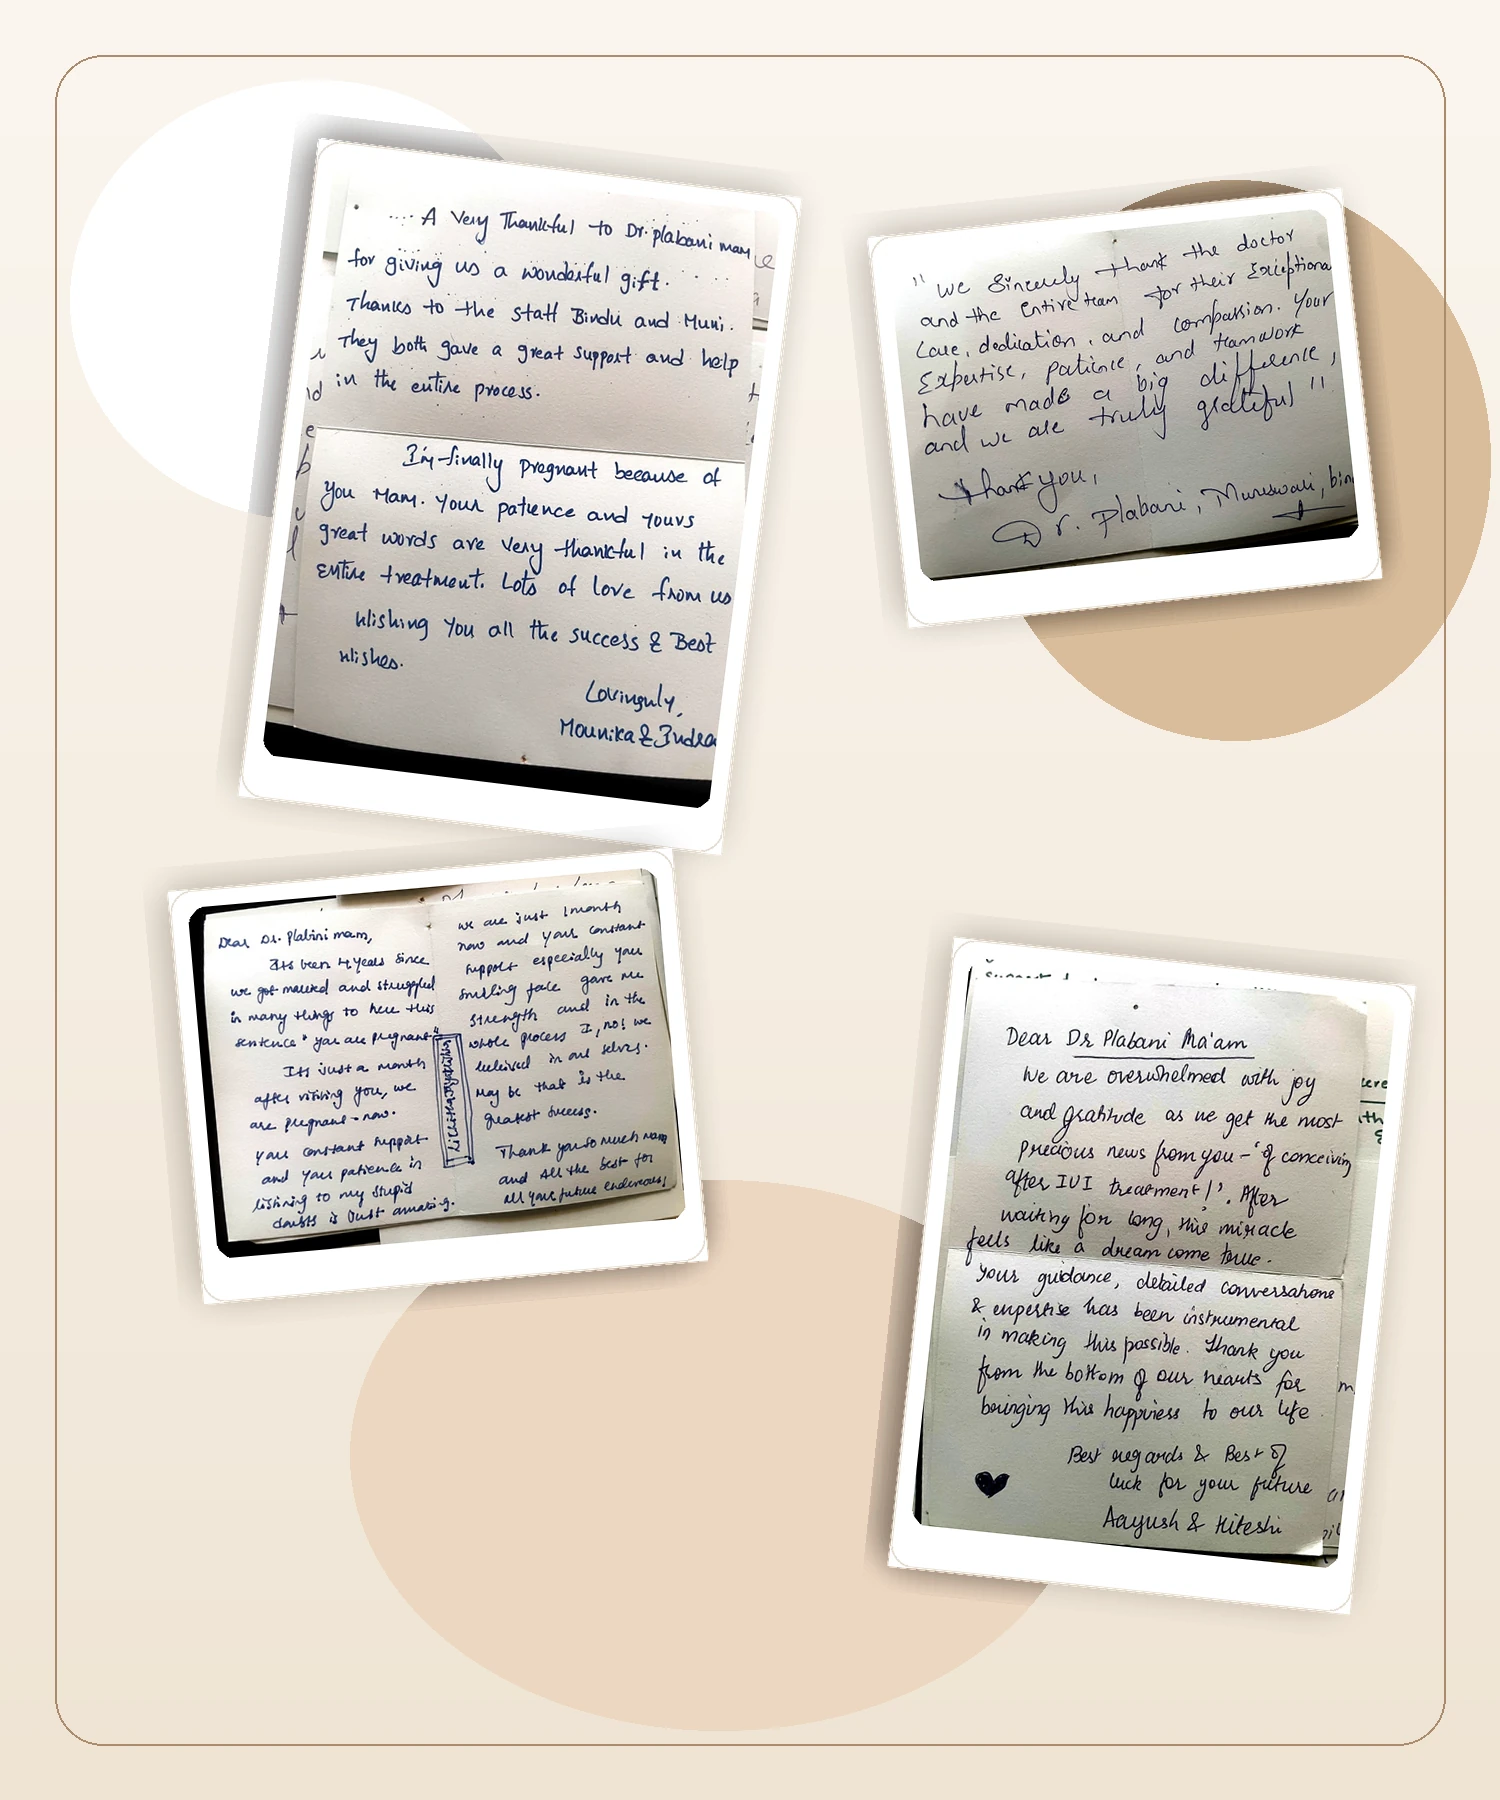 .... A Very Thankful to Dr. plabani mam
for giving us a wonderful gift.
Thanks to the staff Bindu and Muni.
They both gave a great support and help
in the entire process.
I'm finally pregnant because of
you Mam. Your patience and yours
great words are very thankful in the
entire treatment. Lots of love from us
Wishing you all the success & Best
Wishes.
Lovingly,
Mounika & Indra
"We Sincerely thank the doctor
and the Entire team for their Exceptiona
Care, dedication, and compassion. Your
Expertise, patience, and teamwork
have made a big difference,
and we are truly grateful"
Thank you,
Dr. Plabani, Muneswari, bin
Dear Dr. Plabini mam,
Its been 4 years since
we got married and struggled
in many things to here this
sentence "you are pregnant"
Its just a month
after visiting you, we
are pregnant now.
your constant support
and your patience in
listining to my stupid
doubts is Just amazing.
we are just 1 month
now and your constant
support especially your
smiling face gave me
strength and in the
whole process I, no! we
beleived in our selves.
May be that is the
greatest success.
Thank you so much mam
and All the best for
all your future endeavours!
Dear Dr Plabani Ma'am
We are overwhelmed with joy
and gratitude as we get the most
precious news from you - 'of conceiving
after IUI treatment!'. After
waiting for long, this miracle
feels like a dream come true.
Your guidance, detailed conversations
& expertise has been instrumental
in making this possible. Thank you
from the bottom of our hearts for
bringing this happiness to our life
Best regards & Best of
luck for your future
Aayush & Hiteshi